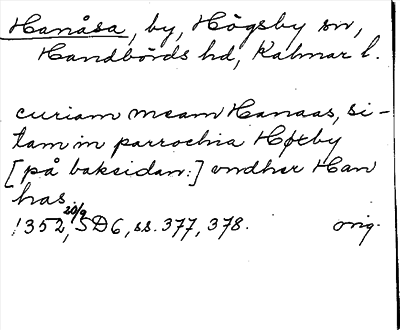 Hanåsa, by, Högsby sn,
Handbörds hd, Kalmar l.
curiam meam Hanaas, si-
tam in parrochia Høxby
[på baksidan:] vndher Han
has.
1352 20/9, SD6, ss. 377, 378. orig.